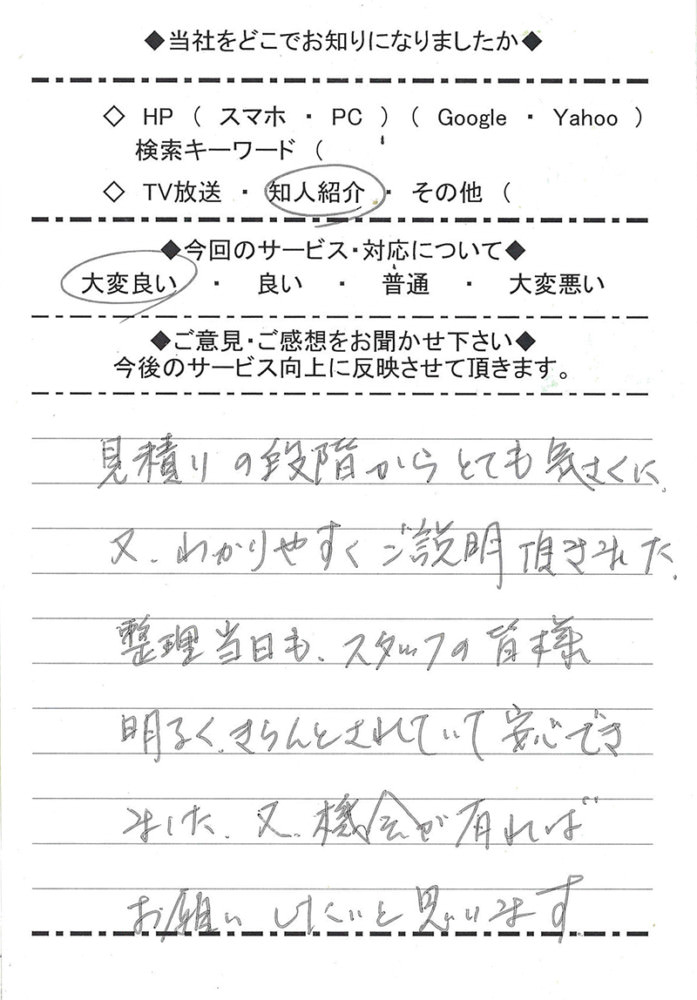 ◆当社をどこでお知りになりましたか◆
◇ HP ( スマホ ・ PC ) ( Google ・ Yahoo )
検索キーワード (
◇ TV放送 ・ 知人紹介 ・ その他 (
◆今回のサービス・対応について◆
大変良い ・ 良い ・ 普通 ・ 大変悪い
◆ご意見・ご感想をお聞かせ下さい◆
今後のサービス向上に反映させて頂きます。
見積りの段階からとても気さくに、
又、わかりやすくご説明頂きました。
整理当日も、スタッフの皆様
明るく、きちんとされていて安心でき
ました。又、機会が有れば
お願いしたいと思います。